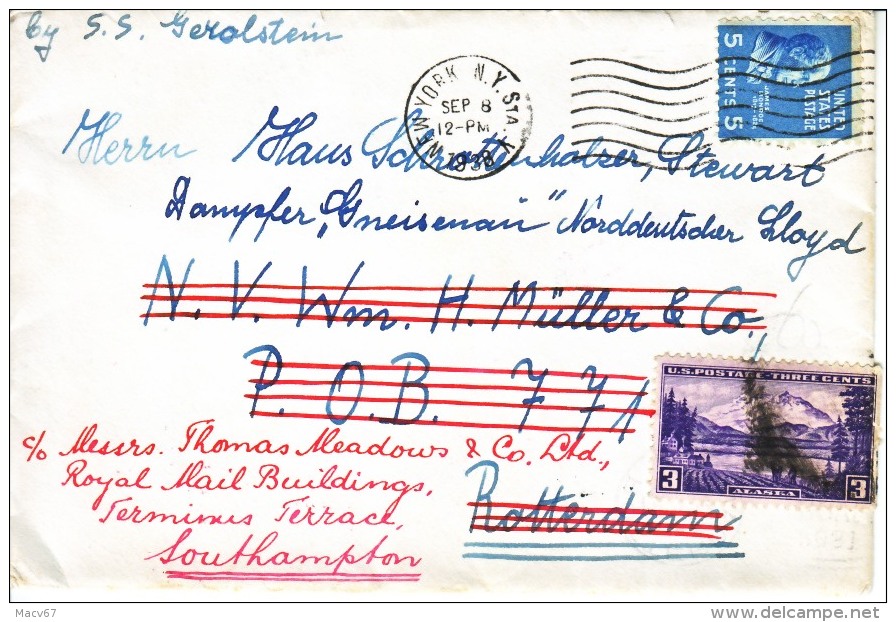 by S.S. Gerolstein
NEW YORK N.Y. STA. V
SEP 8
12-PM
1938
UNITED
STATES
POSTAGE
JAMES
MONROE
5 CENTS 5
Herrn Hans Schrottenholzer, Stewart
Dampfer „Gneisenau“ Norddeutscher Lloyd
N. V. Wm. H. Müller & Co.,
P. O. B. 771
U.S. POSTAGE-THREE CENTS
3 ALASKA 3
c/o Messrs. Thomas Meadows & Co. Ltd.,
Royal Mail Buildings,
Terminus Terrace,
Southampton
Rotterdam
Macv67
delcampe.net